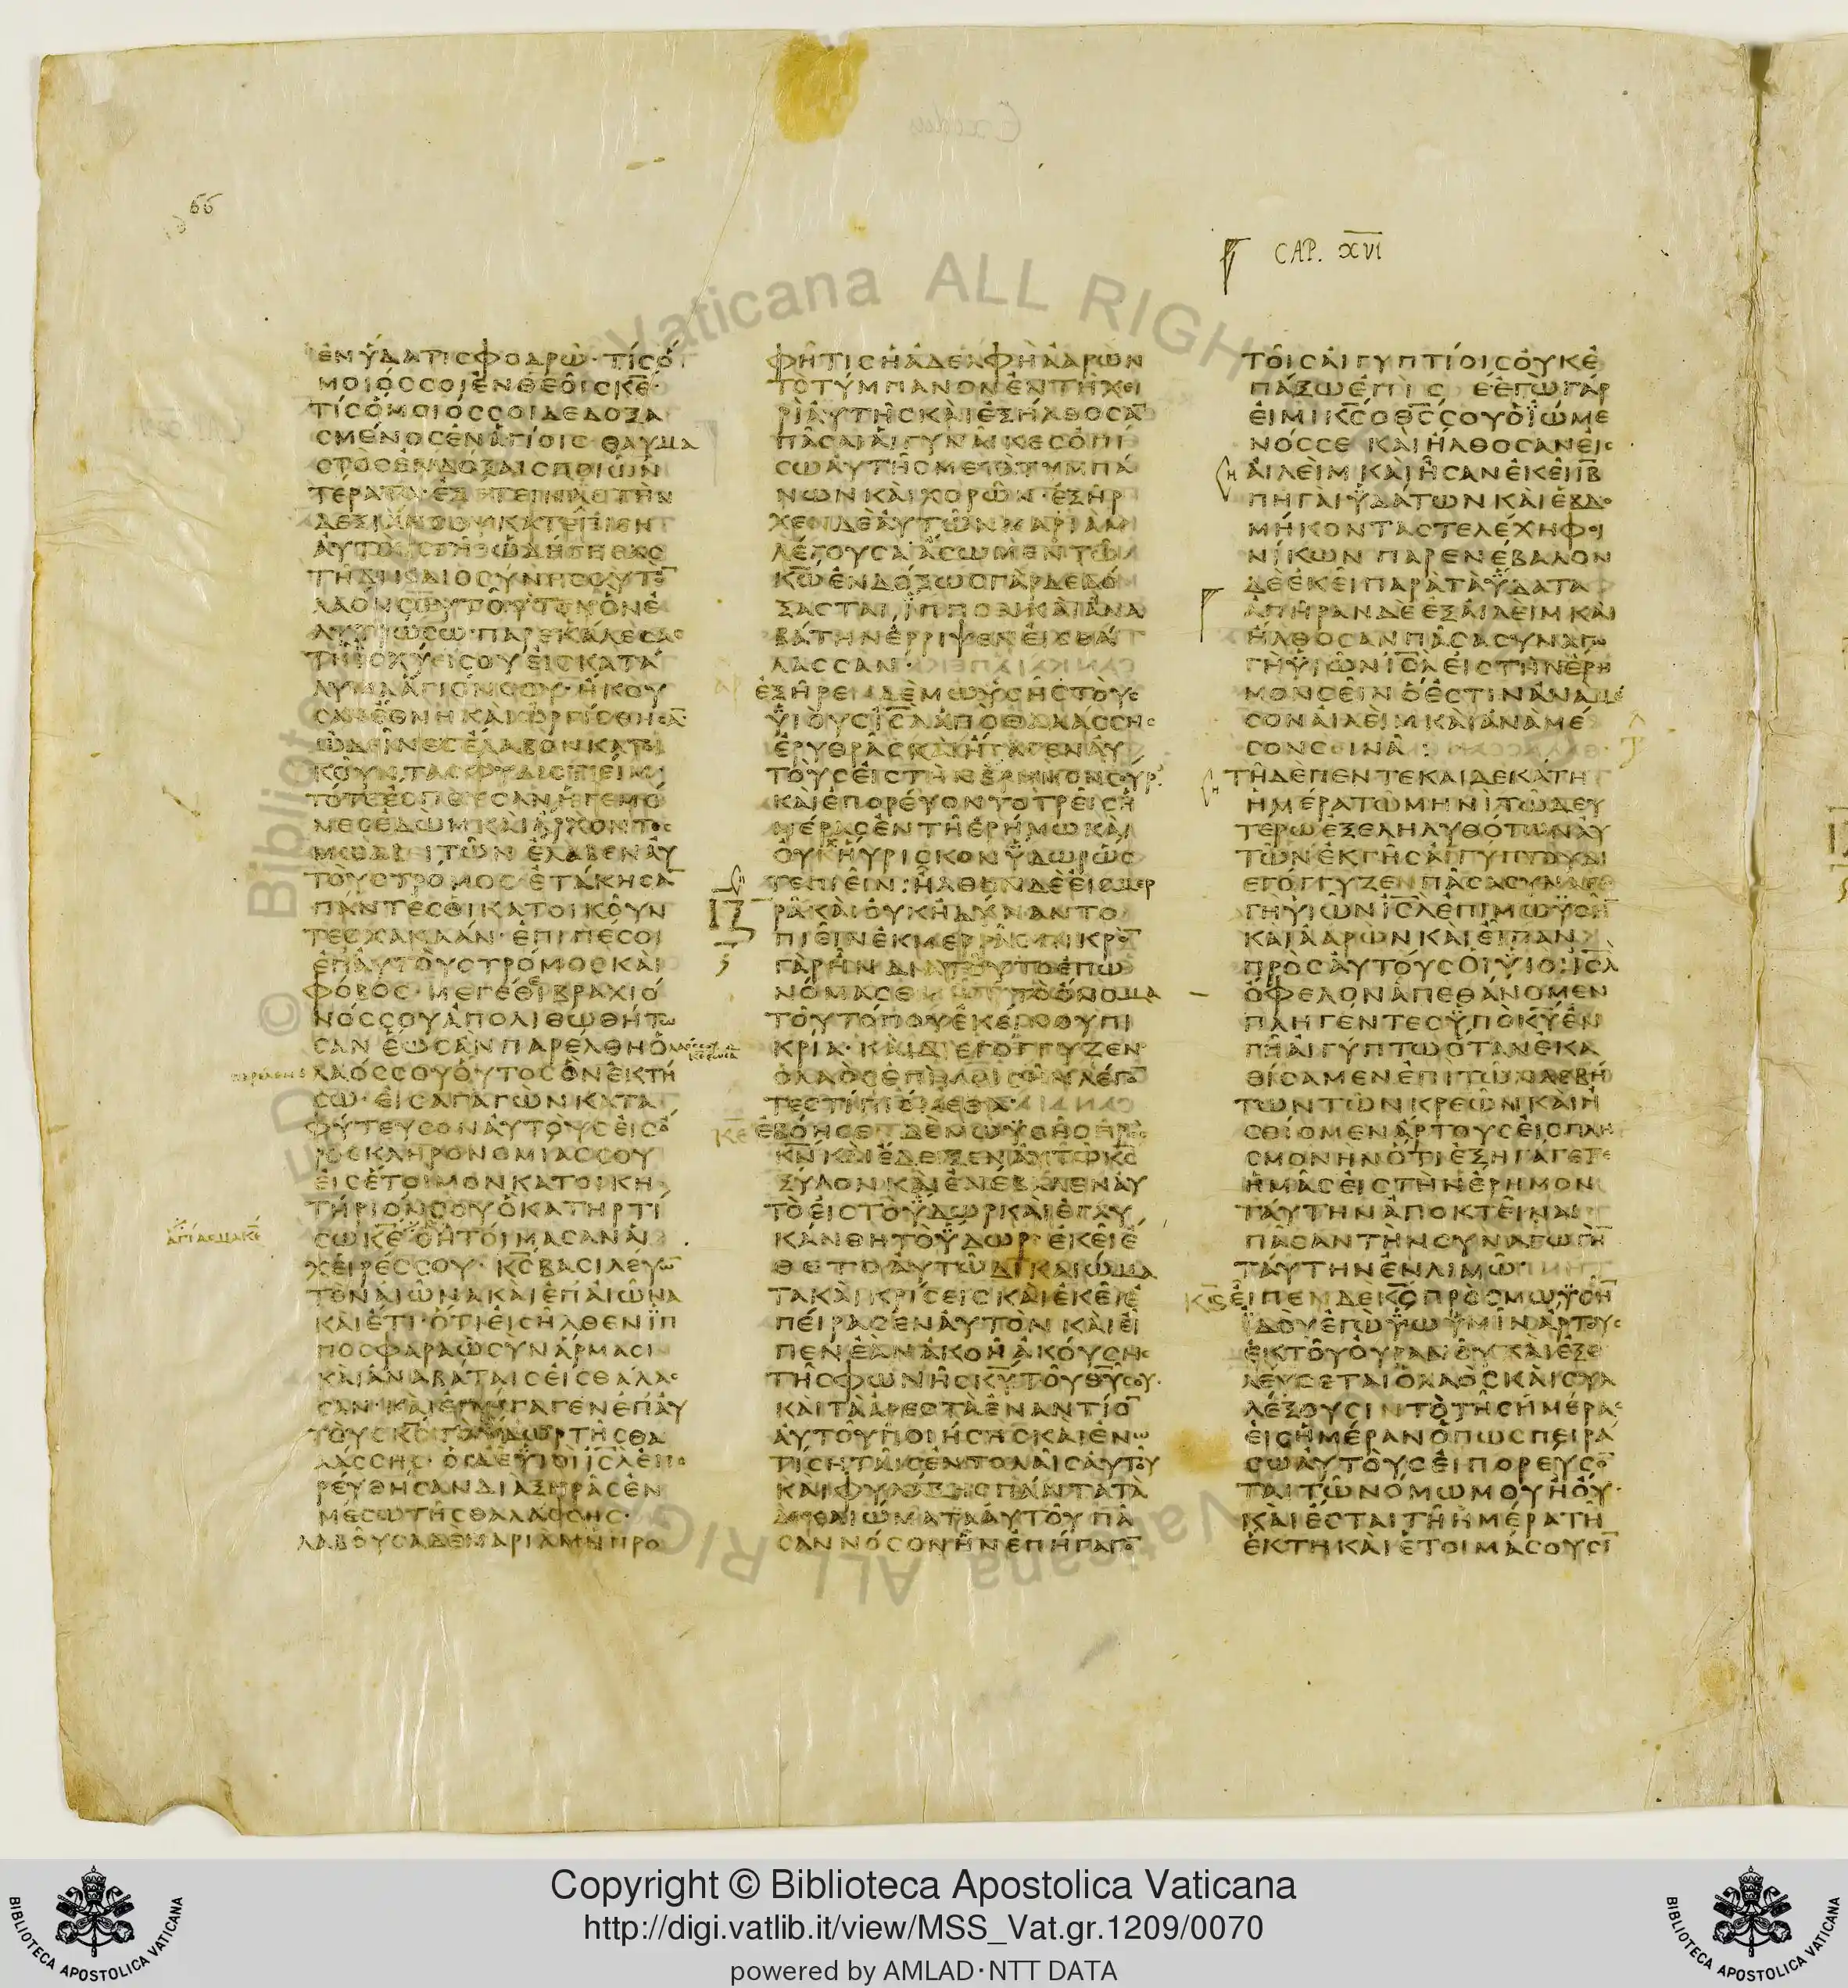 66
CAP. XVI
ΕΝΥΔΑΤΙϹΦΟΔΡΩ·ΤΙϹΟ
ΜΟΙΟϹϹΟΙΕΝΘΕΟΙϹΚ̅Ε̅·
ΤΙϹΟΜΟΙΟϹϹΟΙΔΕΔΟΞΑ
ϹΜΕΝΟϹΕΝΑΓΙΟΙϹ·ΘΑΥΜΑ
ϹΤΟϹΕΝΔΟΞΑΙϹΠΟΙΩΝ
ΤΕΡΑΤΑ·ΕΞΕΤΕΙΝΑϹΤΗΝ
ΔΕΞΙΑΝϹΟΥΚΑΤΕΠΙΕΝ
ΑΥΤΟΥϹΓΗ·ΩΔΗΓΗϹΑϹ
ΤΗΔΙΚΑΙΟϹΥΝΗϹΟΥΤΟ̅
ΛΑΟΝϹΟΥΤΟΥΤΟΝΟΝΕ
ΛΥΤΡΩϹΩ·ΠΑΡΕΚΑΛΕϹΑϹ
ΤΗΙϹΧΥΙϹΟΥΕΙϹΚΑΤΑ
ΛΥΜΑΑΓΙΟΝϹΟΥ·ΗΚΟΥ
ϹΑΝΕΘΝΗΚΑΙΩΡΓΙϹΘΗϹΑ̅
ΩΔΕΙΝΕϹΕΛΑΒΟΝΚΑΤΟΙ
ΚΟΥΝΤΑϹΦΥΛΙϹΤΙΕΙΜ·
ΤΟΤΕΕϹΠΕΥϹΑΝΗΓΕΜΟ
ΝΕϹΕΔΩΜΚΑΙΑΡΧΟΝΤΕϹ
ΜΩΑΒΕΙΤΩΝΕΛΑΒΕΝΑΥ
ΤΟΥϹΤΡΟΜΟϹ·ΕΤΑΚΗϹΑ̅
ΠΑΝΤΕϹΟΙΚΑΤΟΙΚΟΥΝ
ΤΕϹΧΑΝΑΑΝ·ΕΠΙΠΕϹΟΙ
ΕΠΑΥΤΟΥϹΤΡΟΜΟϹΚΑΙ
ΦΟΒΟϹ·ΜΕΓΕΘΙΒΡΑΧΙΟ
ΝΟϹϹΟΥΑΠΟΛΙΘΩΘΗΤΩ
ϹΑΝΕΩϹΑΝΠΑΡΕΛΘΗΟ
ΛΑΟϹϹΟΥΟΥΤΟϹΟΝΕΚΤΗ
ϹΩ·ΕΙϹΑΓΑΓΩΝΚΑΤΑ
ΦΥΤΕΥϹΟΝΑΥΤΟΥϹΕΙϹΟ
ΡΟϹΚΛΗΡΟΝΟΜΙΑϹϹΟΥ
ΕΙϹΕΤΟΙΜΟΝΚΑΤΟΙΚΗ
ΤΗΡΙΟΝϹΟΥΟΚΑΤΗΡΤΙ
ΑΓΙΑϹΜΑΚ̅Ε̅
ϹΩΚ̅Ε̅ΟΗΤΟΙΜΑϹΑΝΑΙ
ΧΕΙΡΕϹϹΟΥ·Κ̅Ϲ̅ΒΑϹΙΛΕΥΩ̅
ΤΟΝΑΙΩΝΑΚΑΙΕΠΑΙΩΝΑ
ΚΑΙΕΤΙ·ΟΤΙΕΙϹΗΛΘΕΝΙΠ
ΠΟϹΦΑΡΑΩϹΥΝΑΡΜΑϹΙ
ΚΑΙΑΝΑΒΑΤΑΙϹΕΙϹΘΑΛΑϹ
ϹΑΝ·ΚΑΙΕΠΗΓΑΓΕΝΕΠΑΥ
ΤΟΥϹΚ̅Ϲ̅ΤΟΥΔΩΡΤΗϹΘΑ
ΛΑϹϹΗϹ·ΟΙΔΕΥΙΟΙΙ̅Ϲ̅Λ̅ΕΠΟ
ΡΕΥΘΗϹΑΝΔΙΑΞΗΡΑϹΕΝ
ΜΕϹΩΤΗϹΘΑΛΑϹϹΗϹ·
ΛΑΒΟΥϹΑΔΕΜΑΡΙΑΜΗΠΡΟ
ΦΗΤΙϹΗΑΔΕΛΦΗΑΑΡΩΝ
ΤΟΤΥΜΠΑΝΟΝΕΝΤΗΧΕΙ
ΡΙΑΥΤΗϹΚΑΙΕΞΗΛΘΟϹΑ̅
ΠΑϹΑΙΑΙΓΥΝΑΙΚΕϹΟΠΙ
ϹΩΑΥΤΗϹΜΕΤΑΤΥΜΠΑ
ΝΩΝΚΑΙΧΟΡΩΝ·ΕΞΗΡ
ΧΕΝΔΕΑΥΤΩΝΜΑΡΙΑΜ
ΛΕΓΟΥϹΑΑϹΩΜΕΝΤΩ
Κ̅Ω̅ΕΝΔΟΞΩϹΓΑΡΔΕΔΟ
ΞΑϹΤΑΙ·ΙΠΠΟΝΚΑΙΑΝΑ
ΒΑΤΗΝΕΡΡΙΨΕΝΕΙϹΘΑ
ΛΑϹϹΑΝ·
ΕΞΗΡΕΝΔΕΜΩΥϹΗϹΤΟΥϹ
ΥΙΟΥϹΙ̅Ϲ̅Λ̅ΑΠΟΘΑΛΑϹϹΗϹ
ΕΡΥΘΡΑϹΚΑΙΗΓΑΓΕΝΑΥ
ΤΟΥϹΕΙϹΤΗΝΕΡΗΜΟΝϹΟΥΡ·
ΚΑΙΕΠΟΡΕΥΟΝΤΟΤΡΕΙϹΗ
ΜΕΡΑϹΕΝΤΗΕΡΗΜΩΚΑΙ
ΟΥΧΗΥΡΙϹΚΟΝΥΔΩΡΩϹ
ΤΕΠΙΕΙΝ·ΗΛΘΟΝΔΕΕΙϹΜΕΡ
ΡΑΚΑΙΟΥΚΗΔΥΝΑΝΤΟ
ΠΙΕΙΝΕΚΜΕΡΡΑϹ·ΠΙΚΡΟ̅
ΓΑΡΗΝΔΙΑΤΟΥΤΟΕΠΩ
ΝΟΜΑϹΕΝΤΟΟΝΟΜΑ
ΤΟΥΤΟΠΟΥΕΚΕΙΝΟΥΠΙ
ΚΡΙΑ·ΚΑΙΔΙΕΓΟΓΓΥΖΕΝ
ΟΛΑΟϹΕΠΙΜΩΥϹΗΛΕΓΟ̅
ΤΕϹΤΙΠΙΟΜΕΘΑ·
ΕΒΟΗϹΕΝΔΕΜΩΥϹΗϹΠΡΟϹ
Κ̅Ν̅ΚΑΙΕΔΕΙΞΕΝΑΥΤΩΚ̅Ϲ̅
ΞΥΛΟΝΚΑΙΕΝΕΒΑΛΕΝΑΥ
ΤΟΕΙϹΤΟΥΔΩΡΚΑΙΕΓΛΥ
ΚΑΝΘΗΤΟΥΔΩΡ·ΕΚΕΙΕ
ΘΕΤΟΑΥΤΩΔΙΚΑΙΩΜΑ
ΤΑΚΑΙΚΡΙϹΕΙϹΚΑΙΕΚΕΙΕ
ΠΕΙΡΑϹΕΝΑΥΤΟΝΚΑΙΕΙ
ΠΕΝΕΑΝΑΚΟΗΑΚΟΥϹΗϹ
ΤΗϹΦΩΝΗϹΚ̅Υ̅ΤΟΥΘ̅Υ̅ϹΟΥ·
ΚΑΙΤΑΑΡΕϹΤΑΕΝΑΝΤΙΟ̅
ΑΥΤΟΥΠΟΙΗϹΗϹΚΑΙΕΝΩ
ΤΙϹΗΤΑΙϹΕΝΤΟΛΑΙϹΑΥΤΟΥ
ΚΑΙΦΥΛΑΞΗϹΠΑΝΤΑΤΑ
ΔΙΚΑΙΩΜΑΤΑΑΥΤΟΥΠΑ
ϹΑΝΝΟϹΟΝΗΝΕΠΗΓΑΓΟ̅
ΤΟΙϹΑΙΓΥΠΤΙΟΙϹΟΥΚΕ
ΠΑΞΩΕΠΙϹΕΕΓΩΓΑΡ
ΕΙΜΙΚ̅Ϲ̅ΟΘ̅Ϲ̅ϹΟΥΟΙΩΜΕ
ΝΟϹϹΕΚΑΙΗΛΘΟϹΑΝΕΙϹ
ΑΙΛΕΙΜΚΑΙΗϹΑΝΕΚΕΙΙ̅Β̅
ΠΗΓΑΙΥΔΑΤΩΝΚΑΙΕΒΔΟ
ΜΗΚΟΝΤΑϹΤΕΛΕΧΗΦΟΙ
ΝΙΚΩΝΠΑΡΕΝΕΒΑΛΟΝ
ΔΕΕΚΕΙΠΑΡΑΤΑΥΔΑΤΑ
ΑΠΗΡΑΝΔΕΕΞΑΙΛΕΙΜΚΑΙ
ΗΛΘΟϹΑΝΠΑϹΑϹΥΝΑΓΩ
ΓΗΥΙΩΝΙ̅Ϲ̅Λ̅ΕΙϹΤΗΝΕΡΗ
ΜΟΝϹΕΙΝΟΕϹΤΙΝΑΝΑΜΕ
ϹΟΝΑΙΛΕΙΜΚΑΙΑΝΑΜΕ
ϹΟΝϹΕΙΝΑ·
ΤΗΔΕΠΕΝΤΕΚΑΙΔΕΚΑΤΗ
ΗΜΕΡΑΤΩΜΗΝΙΤΩΔΕΥ
ΤΕΡΩΕΞΕΛΗΛΥΘΟΤΩΝΑΥ
ΤΩΝΕΚΓΗϹΑΙΓΥΠΤΟΥΔΙ
ΕΓΟΓΓΥΖΕΝΠΑϹΑϹΥΝΑΓΩ
ΓΗΥΙΩΝΙ̅Ϲ̅Λ̅ΕΠΙΜΩΥϹΗ̅
ΚΑΙΑΑΡΩΝΚΑΙΕΙΠΑΝ
ΠΡΟϹΑΥΤΟΥϹΟΙΥΙΟΙΙ̅Ϲ̅Λ̅
ΟΦΕΛΟΝΑΠΕΘΑΝΟΜΕΝ
ΠΛΗΓΕΝΤΕϹΥΠΟΚ̅Υ̅ΕΝ
ΓΗΑΙΓΥΠΤΩΟΤΑΝΕΚΑ
ΘΙϹΑΜΕΝΕΠΙΤΩΝΛΕΒΗ
ΤΩΝΤΩΝΚΡΕΩΝΚΑΙΗ
ϹΘΙΟΜΕΝΑΡΤΟΥϹΕΙϹΠΛΗ
ϹΜΟΝΗΝΟΤΙΕΞΗΓΑΓΕΤΕ
ΗΜΑϹΕΙϹΤΗΝΕΡΗΜΟΝ
ΤΑΥΤΗΝΑΠΟΚΤΕΙΝΑΙ
ΠΑϹΑΝΤΗΝϹΥΝΑΓΩΓΗ̅
ΤΑΥΤΗΝΕΝΛΙΜΩ·
ΕΙΠΕΝΔΕΚ̅Ϲ̅ΠΡΟϹΜΩΥϹΗ̅
ΙΔΟΥΕΓΩΥΩΥΜΙΝΑΡΤΟΥϹ
ΕΚΤΟΥΟΥΡΑΝΟΥΚΑΙΕΞΕ
ΛΕΥϹΕΤΑΙΟΛΑΟϹΚΑΙϹΥΛ
ΛΕΞΟΥϹΙΝΤΟΤΗϹΗΜΕΡΑϹ
ΕΙϹΗΜΕΡΑΝΟΠΩϹΠΕΙΡΑ
ϹΩΑΥΤΟΥϹΕΙΠΟΡΕΥϹΟ̅
ΤΑΙΤΩΝΟΜΩΜΟΥΗΟΥ·
ΚΑΙΕϹΤΑΙΤΗΗΜΕΡΑΤΗ
ΕΚΤΗΚΑΙΕΤΟΙΜΑϹΟΥϹΙ̅
Copyright © Biblioteca Apostolica Vaticana
http://digi.vatlib.it/view/MSS_Vat.gr.1209/0070
powered by AMLAD·NTT DATA
BIBLIOTECA APOSTOLICA VATICANA
BIBLIOTECA APOSTOLICA VATICANA